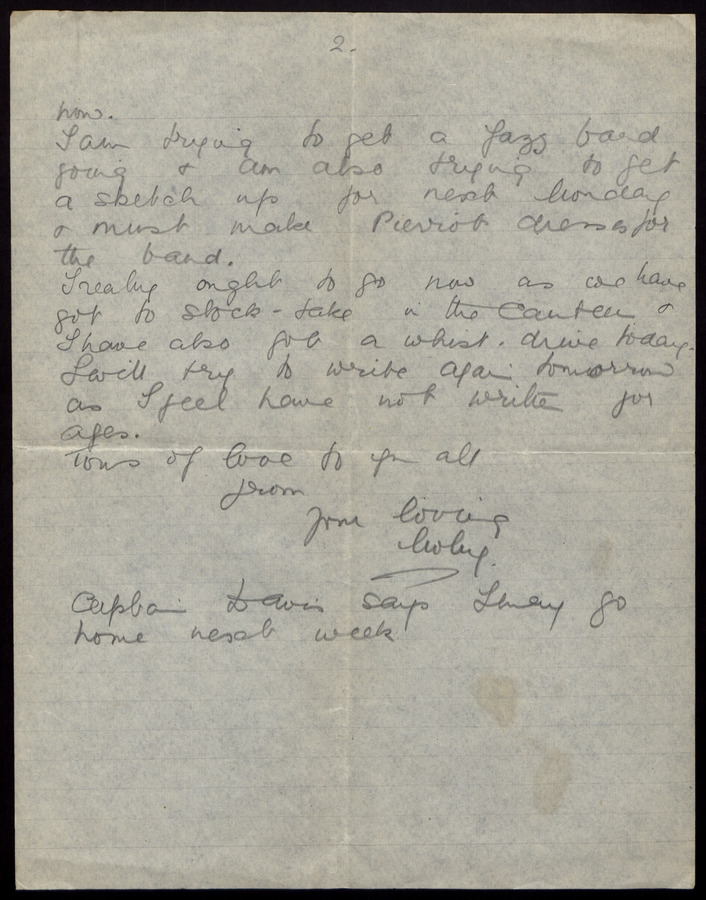 2.
now.
I am trying to get a Jazz band
going & am also trying to get
a sketch up for next Monday
& must make Pierrot dresses for
the band.
I realy ought to go now as we have
got to stock-take in the Canteen &
I have also got a whist-drive today.
I will try to write again tomorrow
as I feel have not written for
ages.
Tons of love to you all
from
your loving
Molly.
Captain Davis says I may go
home next week